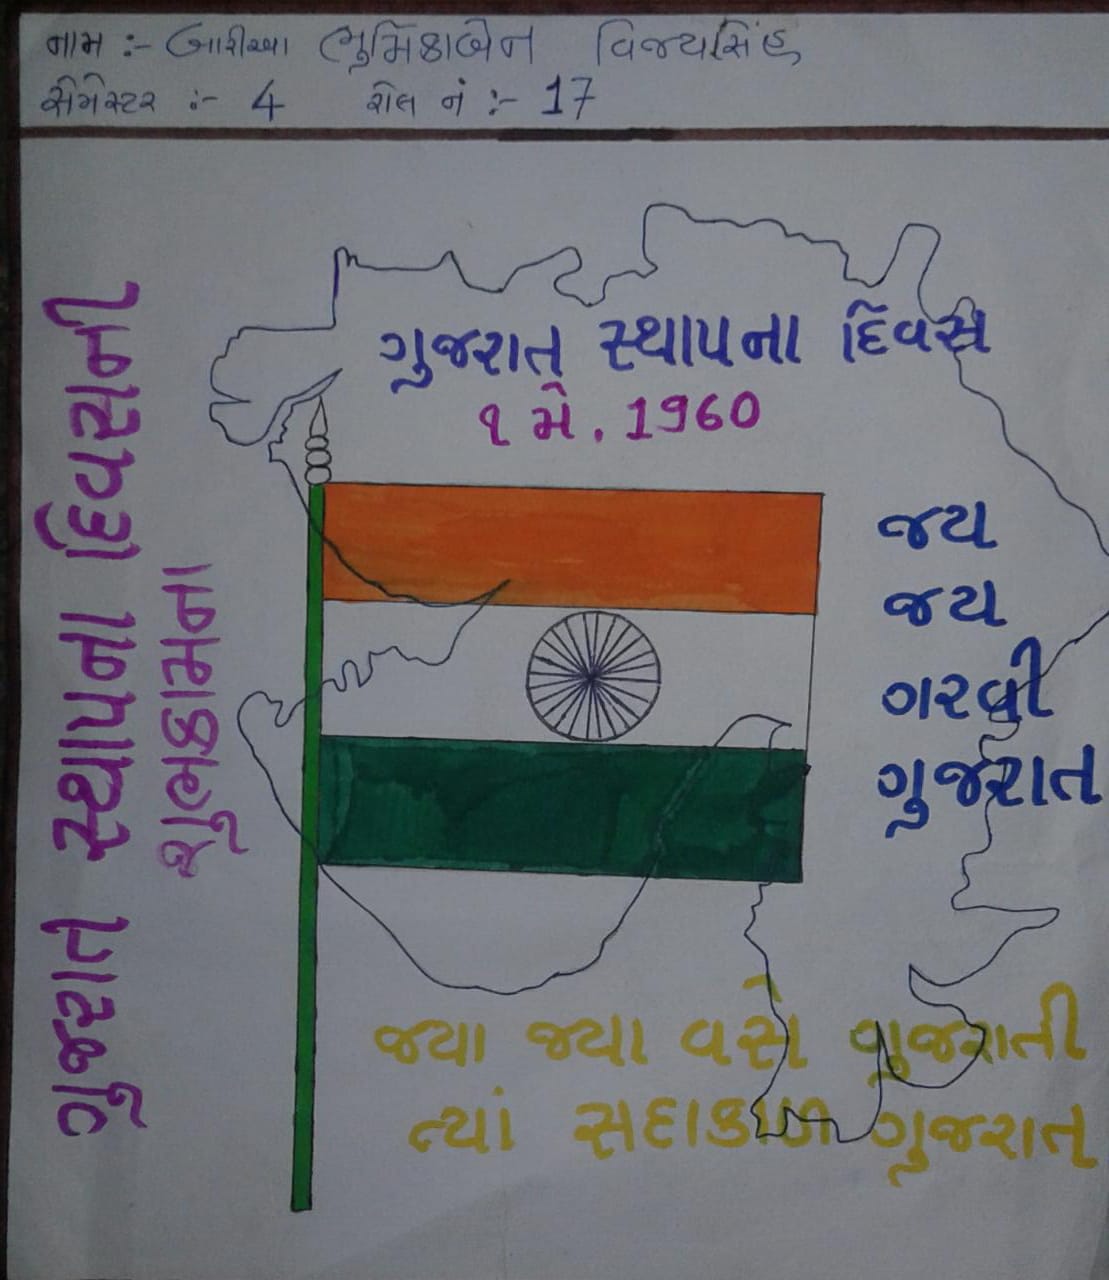 નામ :- બારીઆ ભુમિકાબેન વિજયસિંહ
સેમેસ્ટર :- 4 રોલ નં :- 17
ગુજરાત સ્થાપના દિવસ
૧ મે. 1960
જય
જય
ગરવી
ગુજરાત
ગુજરાત સ્થાપના દિવસની
શુભકામના
જ્યા જ્યા વસે ગુજરાતી
ત્યાં સદાકાળ ગુજરાત